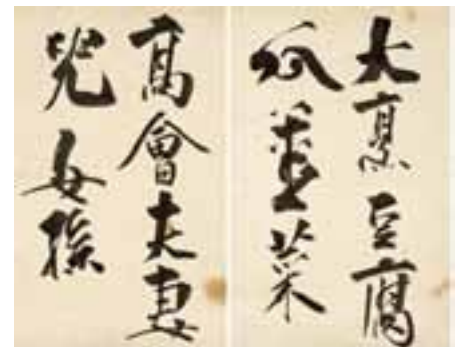 大烹豆腐
瓜薑菜
高會夫妻
児女孫